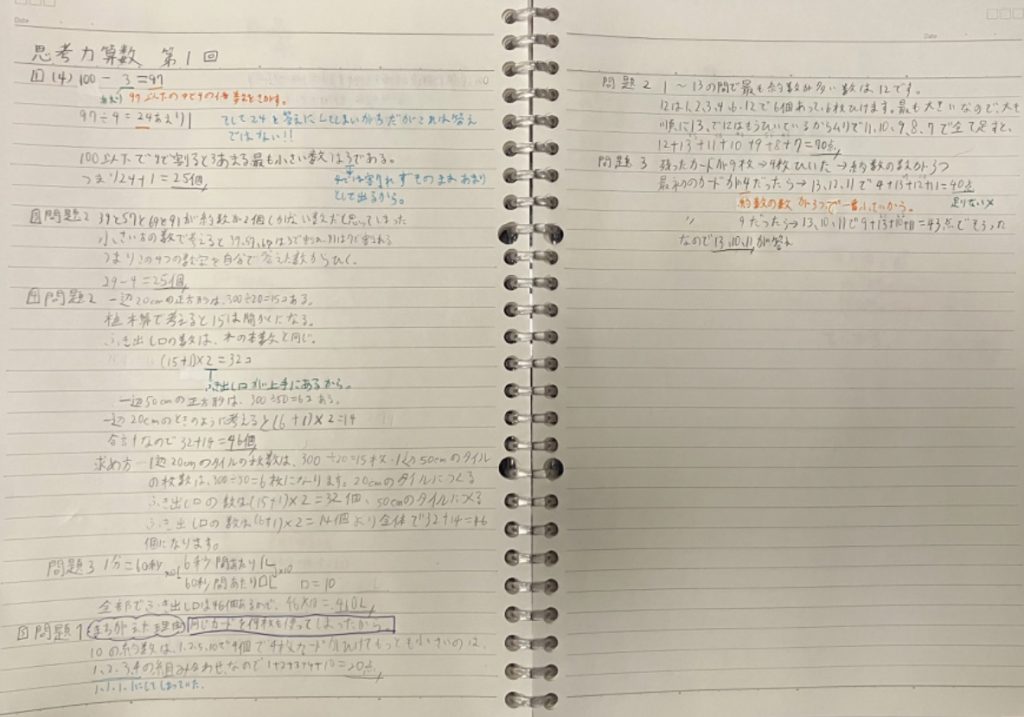 Date
思考力算数 第1回
1 (4) 100 - 3 = 97
97以下の中で4の倍数をさがす。
97÷4=24あまり1
として24と答えにしてしまいがちだがこれは答えではない!!
100以下で4で割ると3あまる最も小さい数は3である。
つまり24+1=25個
4では割りれずそのままあまりとして出るから。
問題2 39と57と69と91が約数が2個しかない答えだと思ってしまった
小さい方の数で考えると39,57,69は3で
つまりこの4つの数字を自分で答えた数からひく。
29-4=25個
問題2 一辺20cmの正方形は、300÷20=15コある。
植木算で考えると15は間かくになる。
ふき出し口の数は、木の本数と同じ。
(15+1)×2=32コ
ふき出し口が上下にあるから。
一辺50cmの正方形は、300÷50=6コある。
一辺20cmのときのように考えると(6+1)×2=14
合計なので32+14=46個
求め方…1辺20cmのタイルの枚数は、300÷20=15枚、1辺50cmのタイル
の枚数は、300÷50=6枚になります。20cmのタイルにつくる
ふき出し口の数は(15+1)×2=32個、50cmのタイルにつくる
ふき出し口の数は(6+1)×2=14個より全体で32+14=46
個になります。
問題3 1分=60秒 ×10 6秒間あたり1L ×10
60秒間あたり□L □=10
全部でふき出し口は46個あるので、46×10=460L
問題1 まちがえた理由 同じカードを何枚も使ってしまったから。
10の約数は、1,2,5,10で4個で4枚カードがひけてもっとも小さいのは、
1,2,3,4の組み合わせなので1+2+3+4+10=20点
1,1,1,1にしてしまっていた。
Date
問題2 1~13の間で最も約数が多い数は12です。
12は1,2,3,4,6,12で6個あって、6枚ひけます。最も大きいなので大も
順に13、で12はもうひいているからムリで11,10,9,8,7で全て足すと、
12+13+11+10+9+8+7=70点
問題3 残ったカードが9枚→4枚ひいた→約数の数が3つ
最初のカードが4だったら→13,12,11で4+13+12+11=40点
約数の数が3つで一番小さいから。 足りない×
〃 9だったら→13,10,11で9+13+10+11=43点でそろった
なので13,10,11が答え